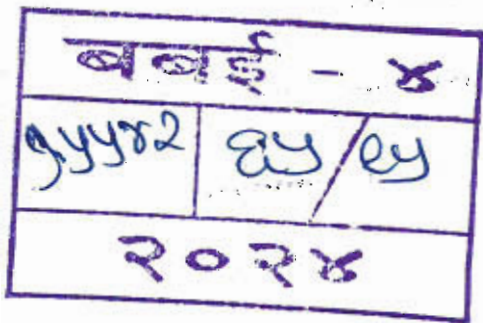 बबई - ४
१५५४२ ६५/९५
२०२४